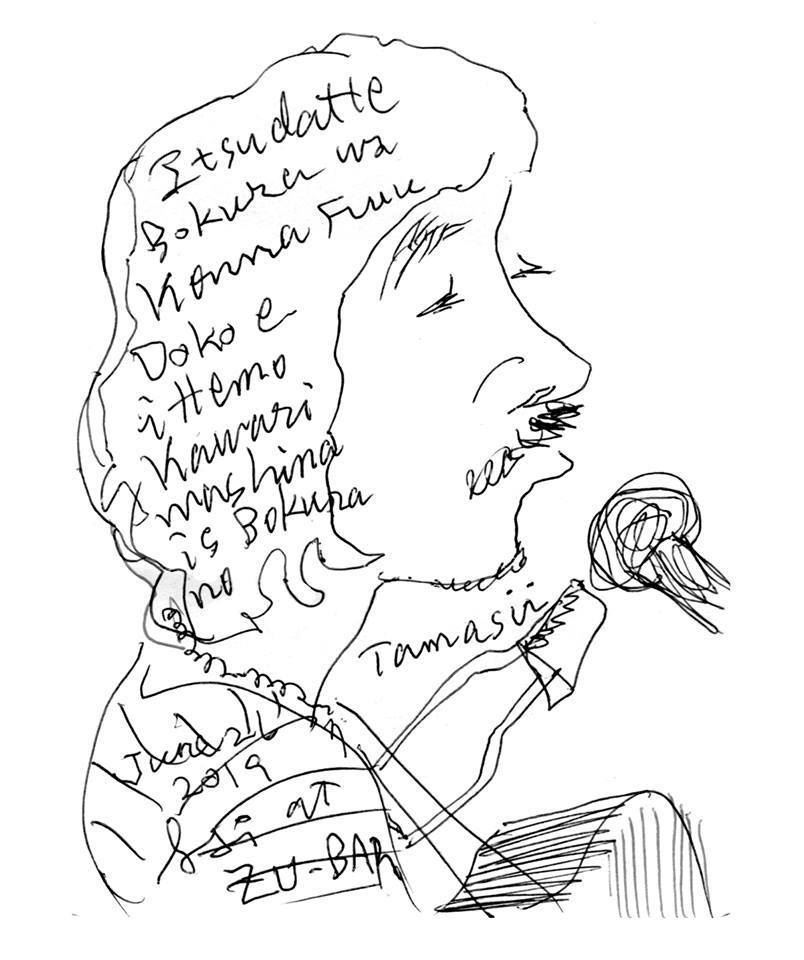 Itsudatte
Bokura wa
Konna Fuu
Doko e
ittemo
Kawari
mashina
is Bokura
no
Tamasii
June 21
2019
at
ZU-BAR